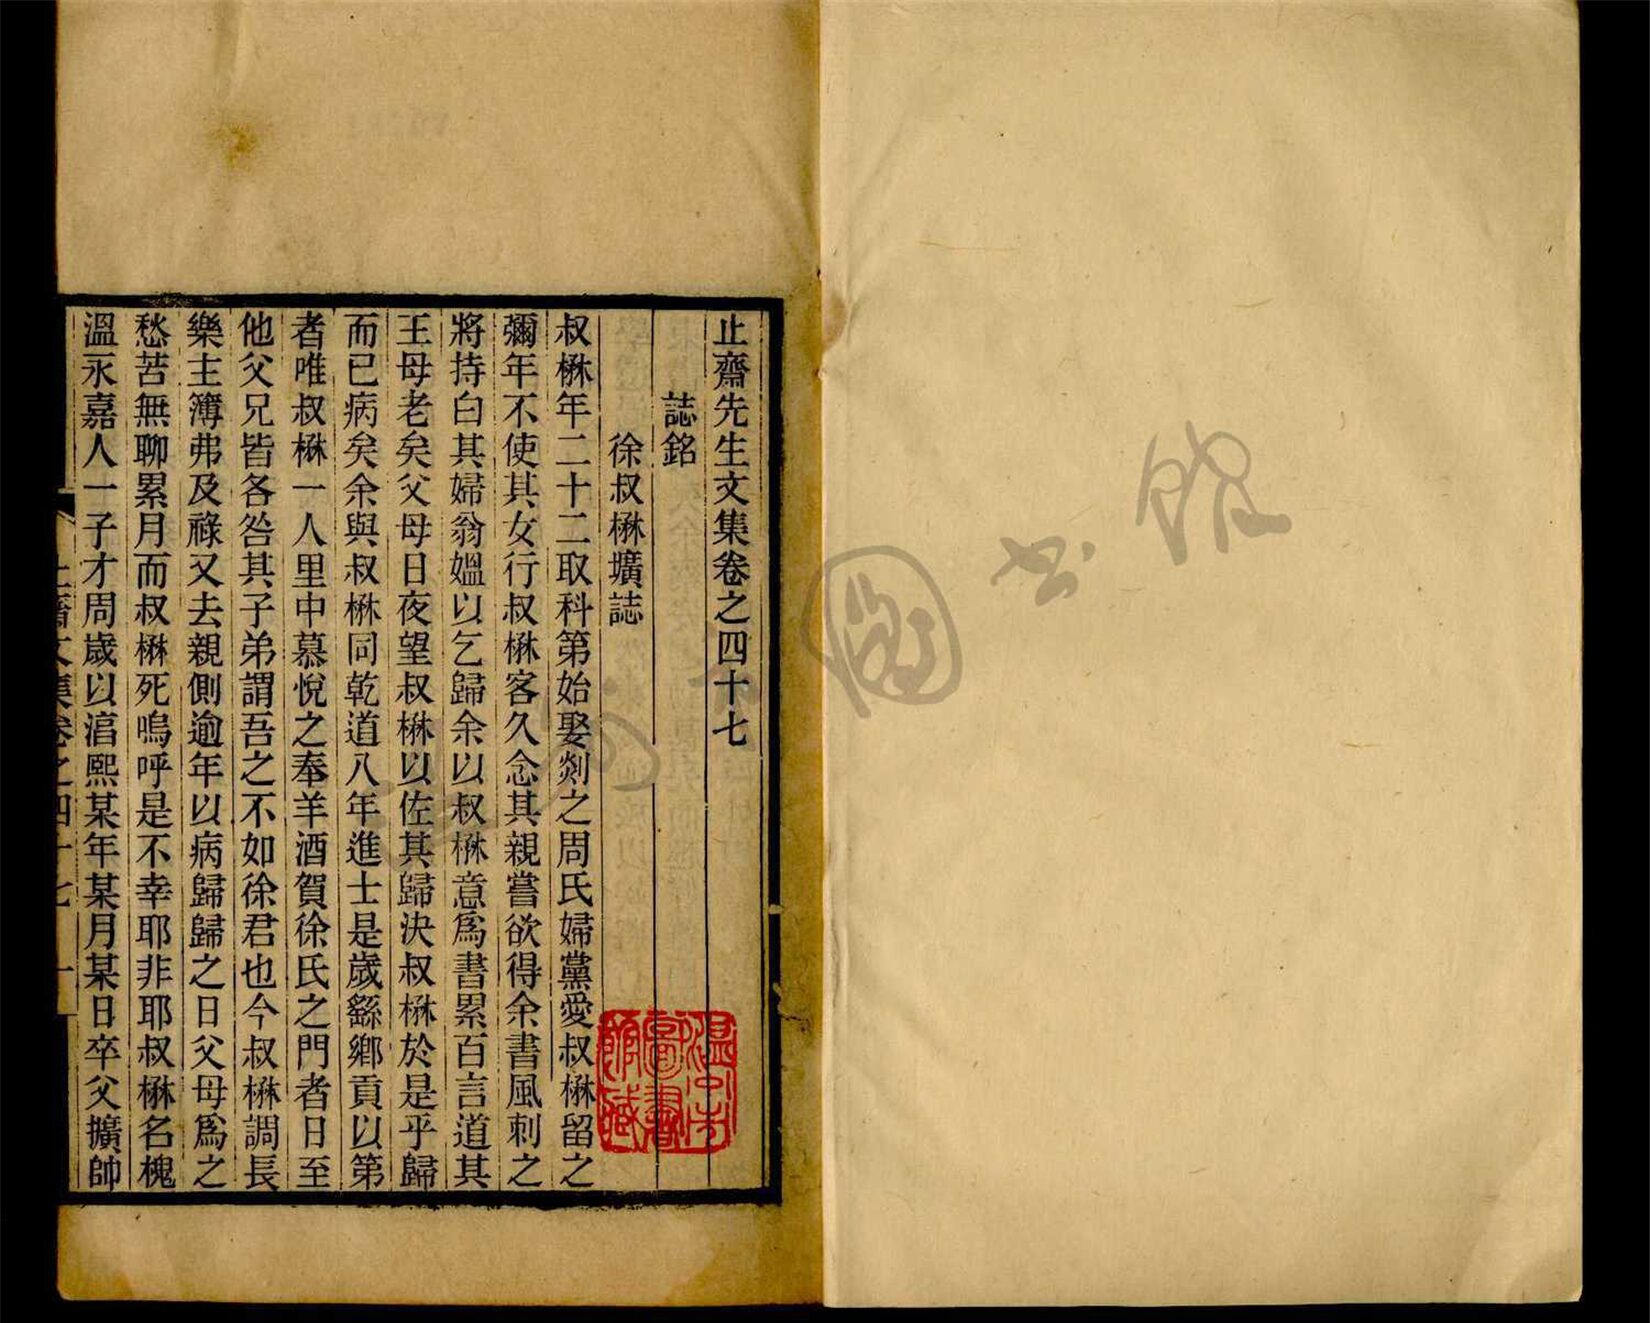 止齋先生文集卷之四十七
誌銘
徐叔楙壙誌
叔楙年二十二取科第始娶剡之周氏婦黨愛叔楙留之
彌年不使其女行叔楙客久念其親嘗欲得余書風刺之
將持白其婦翁媼以乞歸余以叔楙意爲書累百言道其
王母老矣父母日夜望叔楙以佐其歸決叔楙於是乎歸
而已病矣余與叔楙同乾道八年進士是歲繇鄉貢以第
者唯叔楙一人里中慕悅之奉羊酒賀徐氏之門者日至
他父兄皆各咎其子弟謂吾之不如徐君也今叔楙調長
樂主簿弗及祿又去親側逾年以病歸歸之日父母爲之
愁苦無聊累月而叔楙死嗚呼是不幸耶非耶叔楙名槐
溫永嘉人一子才周歲以湻熙某年某月某日卒父擴帥
止齋文集卷之四十七 一
溫州市圖書館藏
圖書館